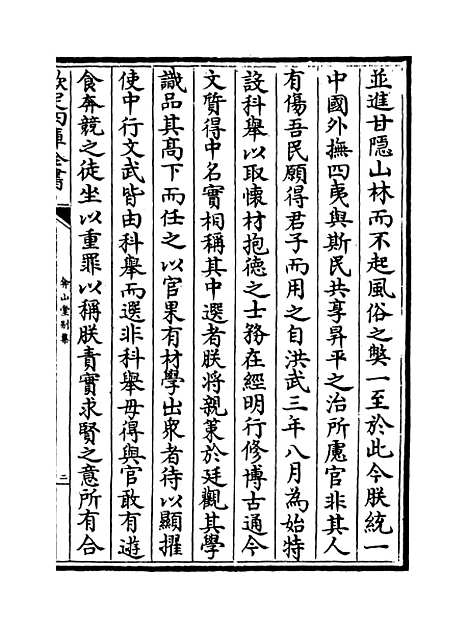 並進甘隱山林而不起風俗之獘一至於此今朕統一
中國外撫四夷與斯民共享昇平之治所慮官非其人
有傷吾民願得君子而用之自洪武三年八月為始特
設科舉以取懷材抱德之士務在經明行修博古通今
文質得中名實相稱其中選者朕將親䇿於廷觀其學
識品其髙下而任之以官果有材學出衆者待以顯擢
使中行文武皆由科舉而選非科舉毋得與官敢有遊
食奔競之徒坐以重罪以稱朕責實求賢之意所有合
欽定四庫全書
弇山堂别集
二